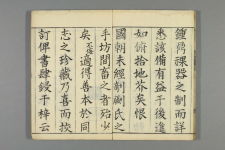 鐘鼎祼器之制而詳
悉該備有益于後進
如俯拾地芥矣恨
國朝未經剞劂氏之
手坊間畜之者殆少
矣適得善本於同
志之珍藏乃喜而挍
訂俾書肆鋟于梓云